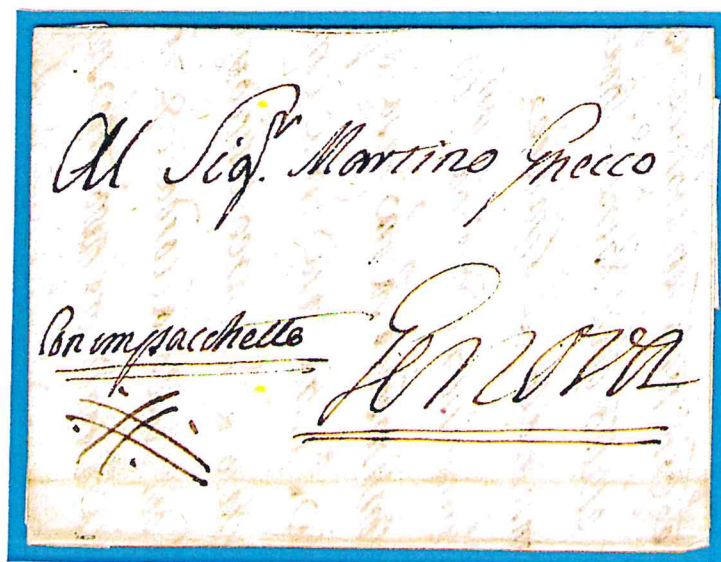 Al Sig.r Martino Gnecco
Con un pacchetto
Genova